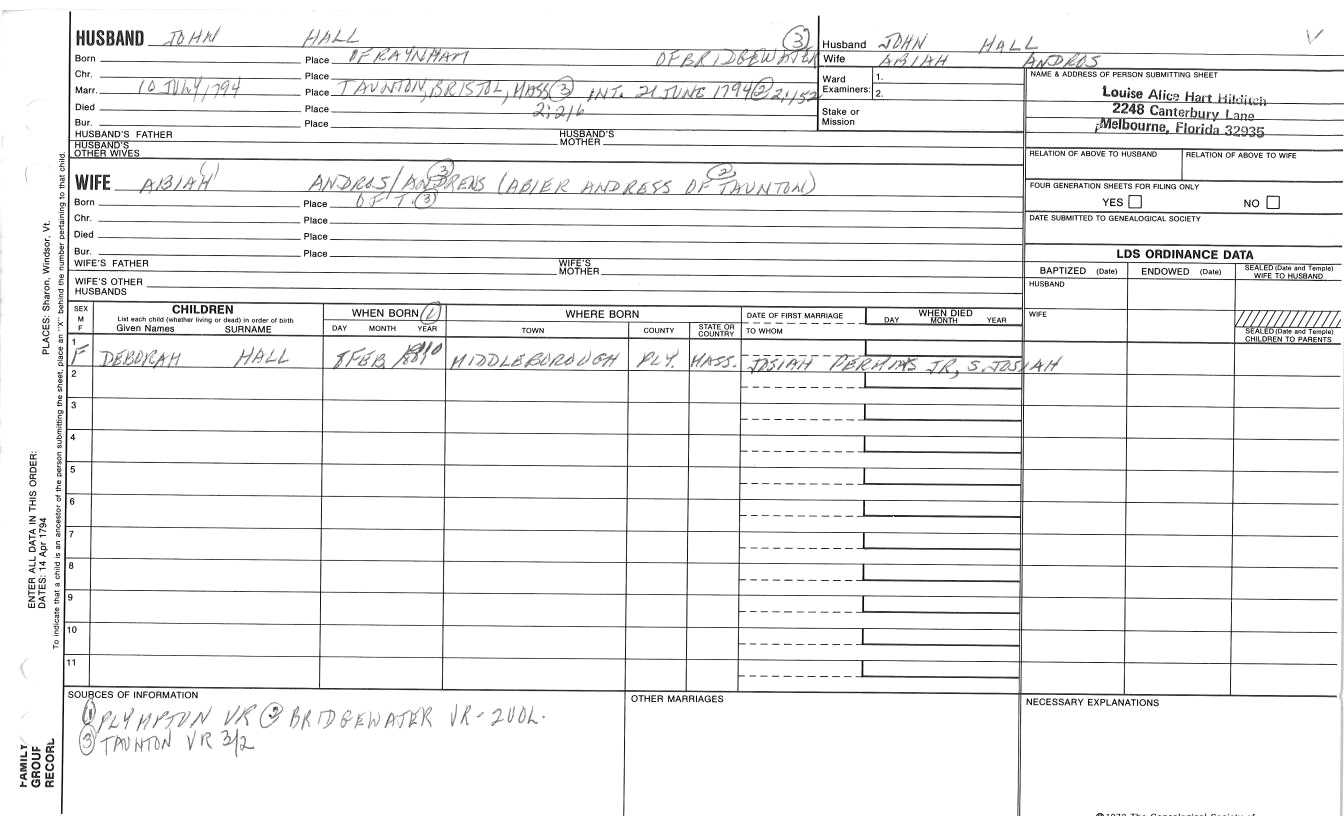 HUSBAND JOHN HALL
Born Place OF RAYNHAM OF BRIDGEWATER (3)
Chr. Place
Marr. 10 JULY 1794 Place TAUNTON, BRISTOL, MASS (3) INT. 21 JUNE 1794 (2) 2:152
Died Place 2:216
Bur. Place
HUSBAND'S FATHER HUSBAND'S MOTHER
HUSBAND'S OTHER WIVES
WIFE ABIAH (1) ANDROS/ANDRENS (3) (ABIER ANDRESS OF TAUNTON) (2)
Born Place OF T. (3)
Chr. Place
Died Place
Bur. Place
WIFE'S FATHER WIFE'S MOTHER
WIFE'S OTHER HUSBANDS
Husband JOHN HALL
Wife ABIAH ANDROS
Ward Examiners: 1.
2.
Stake or Mission
NAME & ADDRESS OF PERSON SUBMITTING SHEET
Louise Alice Hart Hilditch
2248 Canterbury Lane
Melbourne, Florida 32935
RELATION OF ABOVE TO HUSBAND RELATION OF ABOVE TO WIFE
FOUR GENERATION SHEETS FOR FILING ONLY
YES NO
DATE SUBMITTED TO GENEALOGICAL SOCIETY
LDS ORDINANCE DATA
BAPTIZED (Date) ENDOWED (Date) SEALED (Date and Temple) WIFE TO HUSBAND
HUSBAND
WIFE
SEALED (Date and Temple) CHILDREN TO PARENTS
SEX M F
CHILDREN
List each child (whether living or dead) in order of birth
Given Names SURNAME
WHEN BORN (1)
DAY MONTH YEAR
WHERE BORN
TOWN COUNTY STATE OR COUNTRY
DATE OF FIRST MARRIAGE
TO WHOM
WHEN DIED
DAY MONTH YEAR
1 F DEBORAH HALL FEB. MIDDLEBOROUGH PLY. MASS. JOSIAH JR, S. JOSIAH
2
3
4
5
6
7
8
9
10
11
SOURCES OF INFORMATION
(1) PLYMPTON VR (2) BRIDGEWATER VR - 2 VOL.
(3) TAUNTON VR 3/2
OTHER MARRIAGES
NECESSARY EXPLANATIONS
PLACES: Sharon, Windsor, Vt.
To indicate that a child is an ancestor of the person submitting the sheet, place an "X" behind the number pertaining to that child.
ENTER ALL DATA IN THIS ORDER:
DATES: 14 Apr 1794
FAMILY
GROUP
RECORD